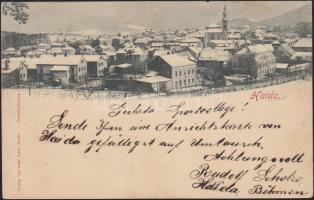 Haida.
Geehrter Sportcollege!
Sende Ihnen eine Ansichtskarte von
Haida gefälligst auf Umtausch.
Achtungsvoll
Rudolf Scholze
Haida
Böhmen